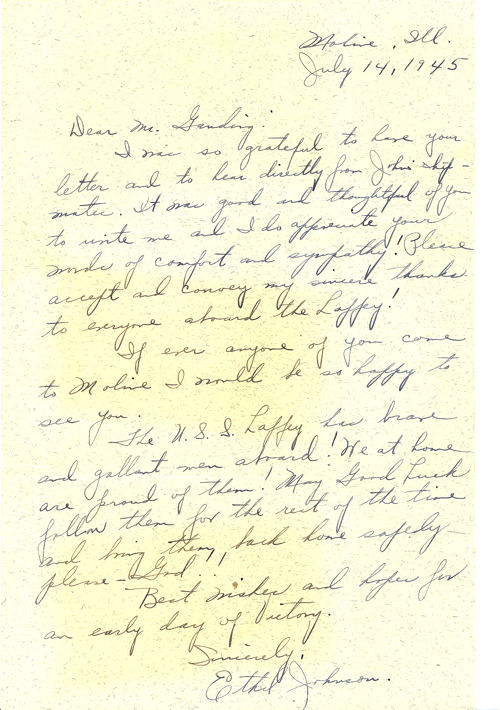 Moline, Ill.
July 14, 1945
Dear Mr. Gauding:
I was so grateful to have your
letter and to hear directly from John's ship-
mates. It was good and thoughtful of you
to write me and I do appreciate your
words of comfort and sympathy! Please
accept and convey my sincere thanks
to everyone aboard the Laffey!
If ever anyone of you come
to Moline I would be so happy to
see you.
The U.S.S. Laffey has brave
and gallant men aboard! We at home
are proud of them! May Good Luck
follow them for the rest of the time
and bring them back home safely—
please—God!!
Best wishes and hopes for
an early day of victory.
Sincerely,
Ethel Johnson.